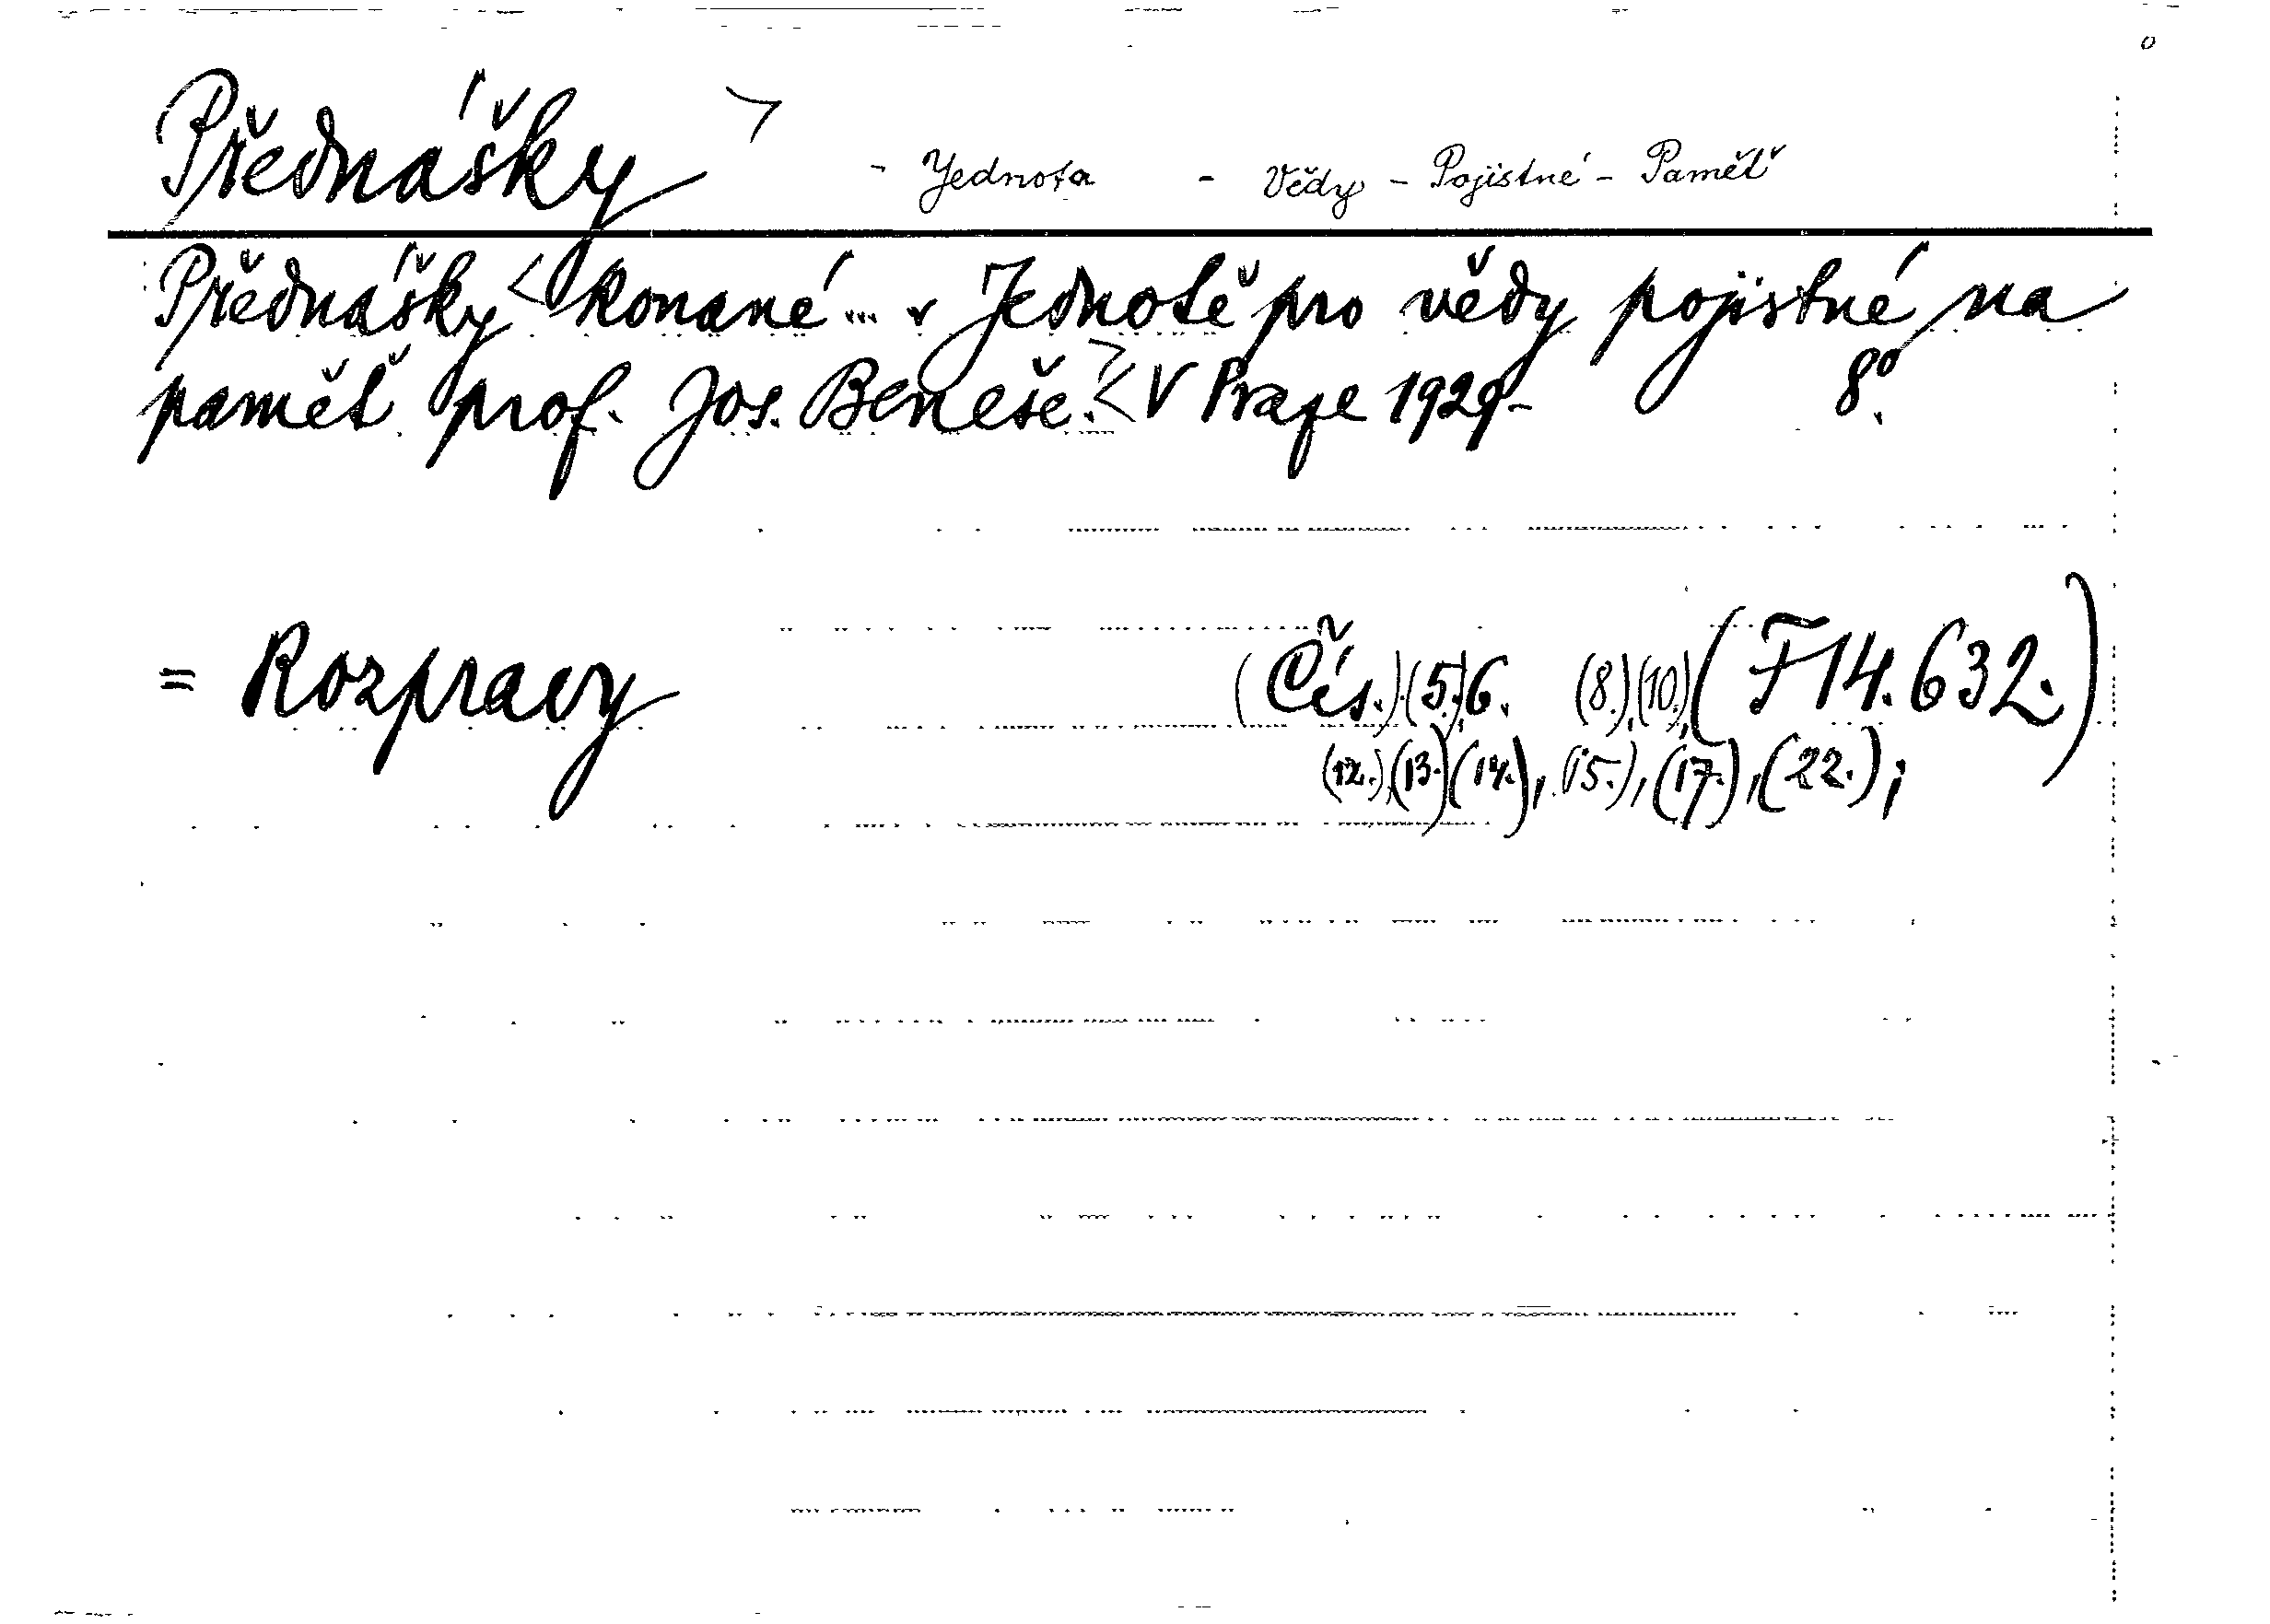 Přednášky > - Jednota - Vědy - Pojistné - Paměť
Přednášky < konané ... v Jednotě pro vědy pojistné na
paměť prof. Jos. Beneše. > < V Praze 1929- 8°.
= Rozpravy (Čís.) (5.), 6. (8.), (10.), (F 14.632.)
(12.), (13.) (14.), (15.), (17.), (22.);